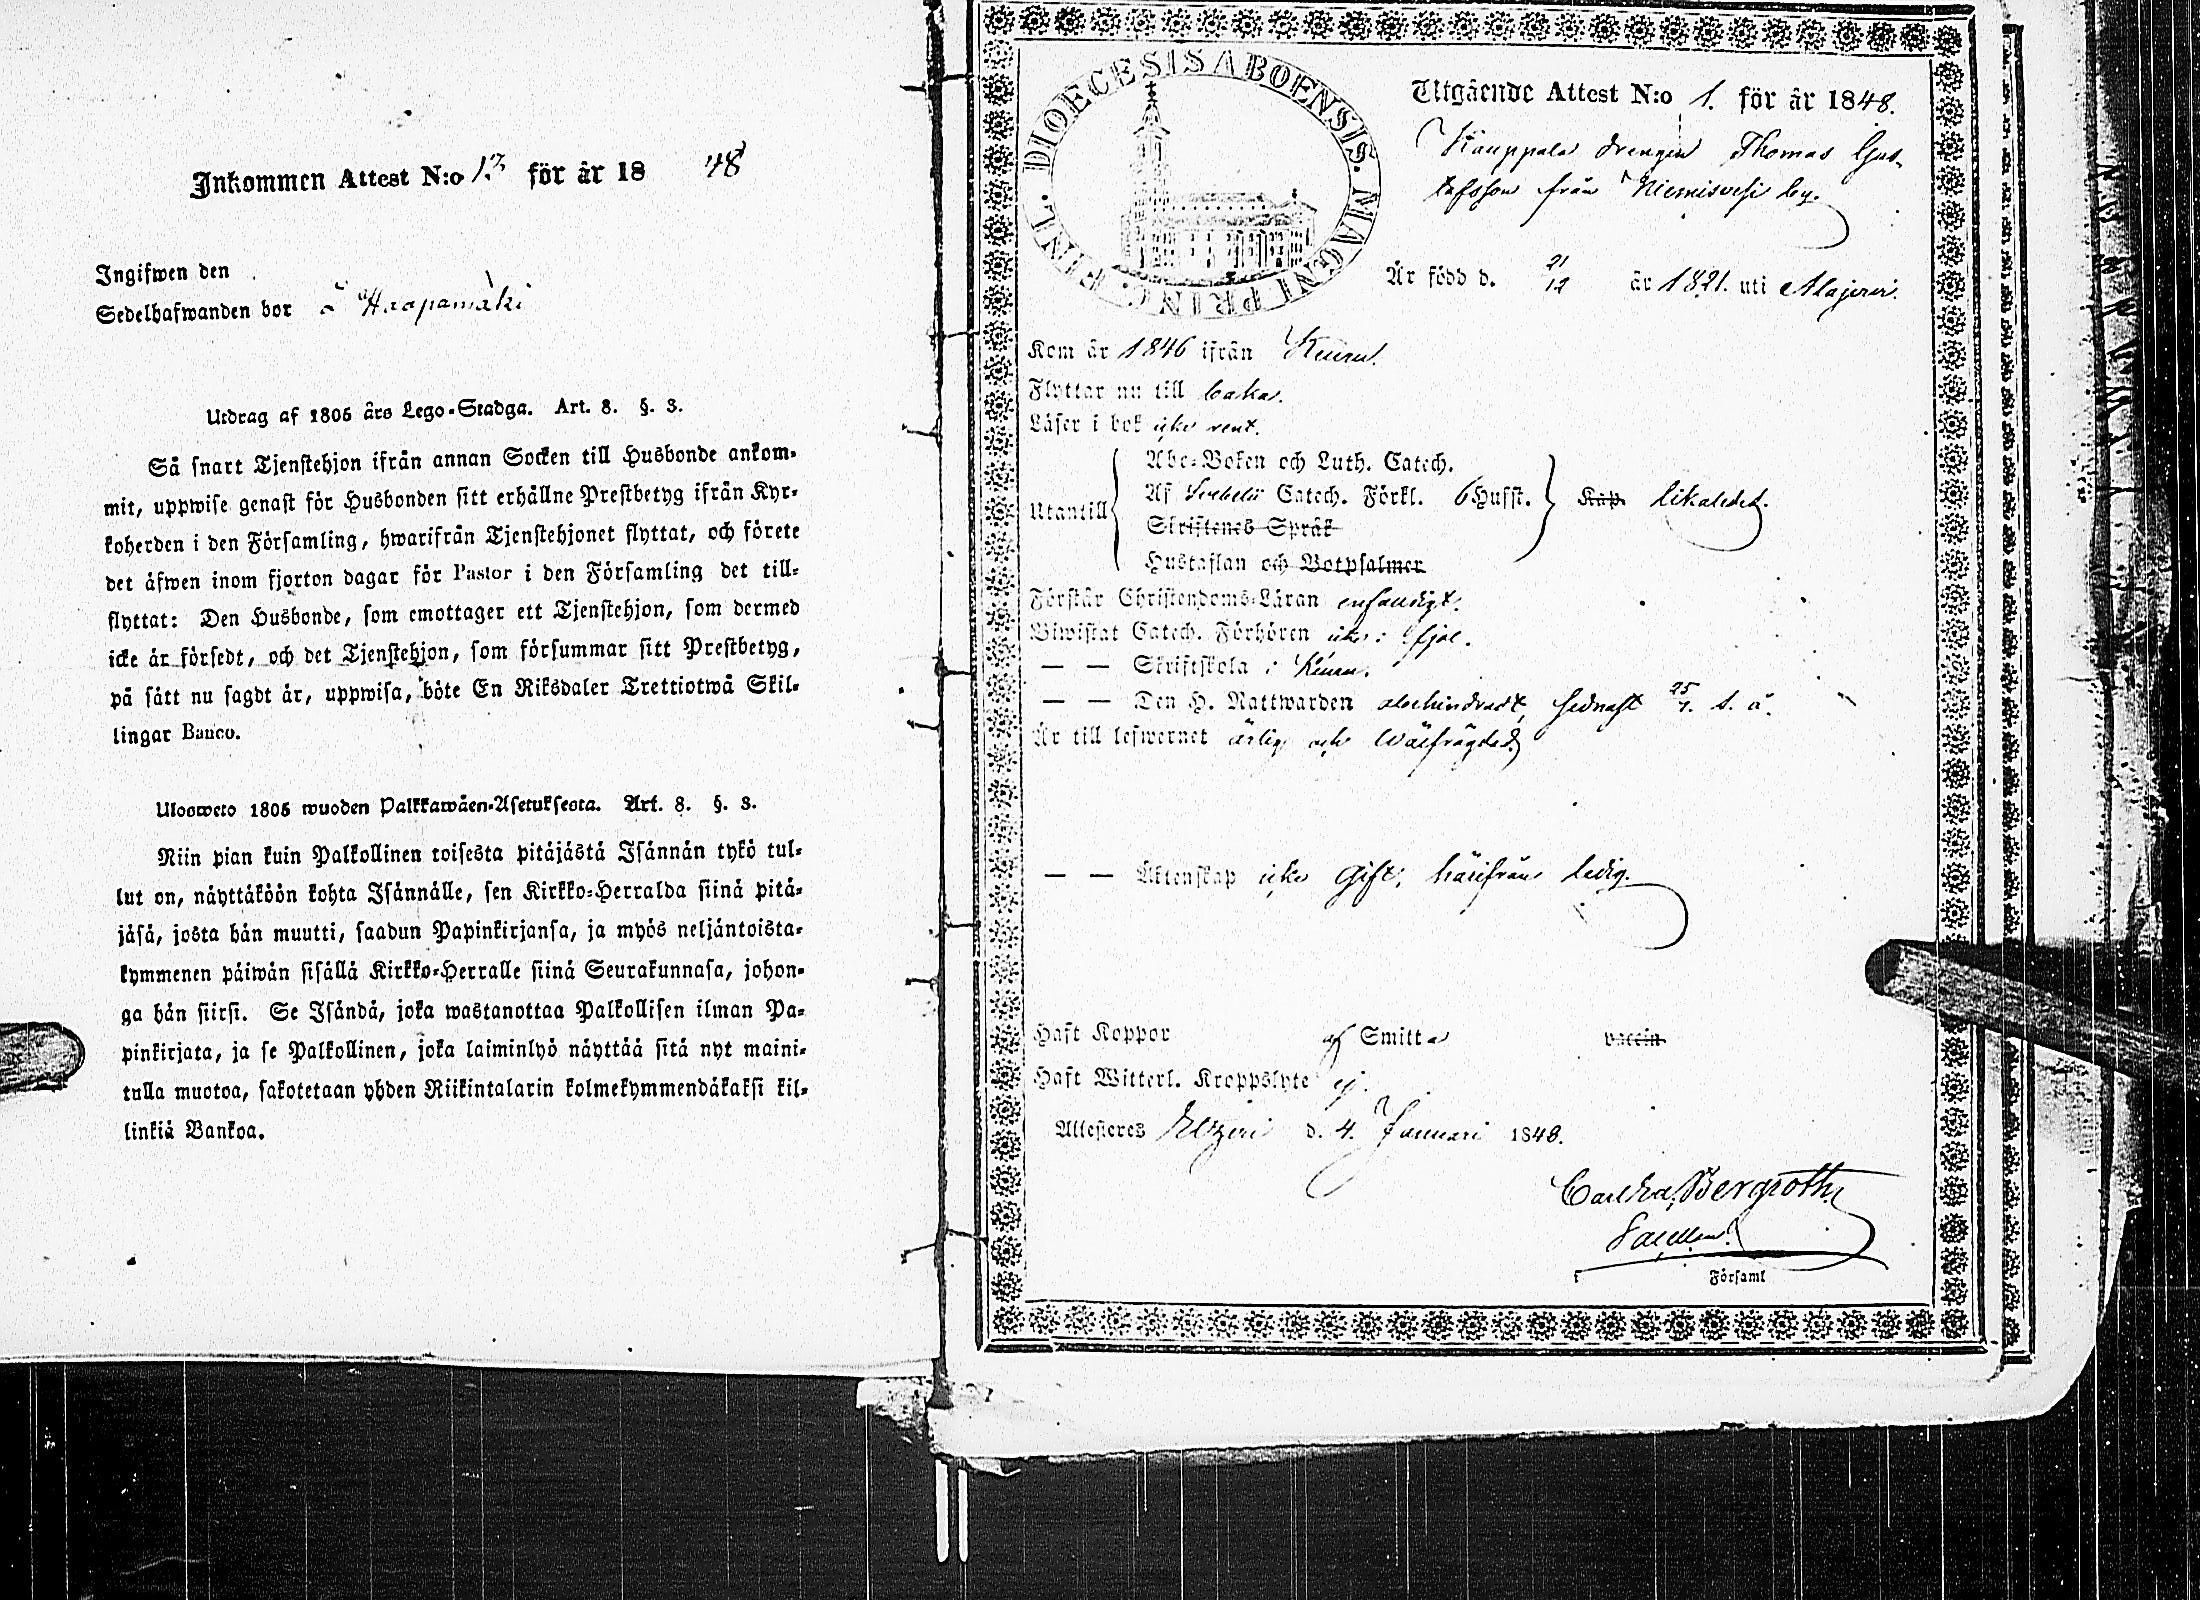 Inkommen Attest N:o 13 för år 18 48
Ingifwen den
Sedelhafwanden bor i Haapamäki
Utdrag af 1805 års Lego-Stadga. Art. 8. §. 3.
Så snart Tjenstehjon ifrån annan Socken till Husbonde ankom-
mit, uppwise genast för Husbonden sitt erhållne Prestbetyg ifrån Kyr-
koherden i den Församling, hwarifrån Tjenstehjonet flyttat, och förete
det äfwen inom fjorton dagar för Pastor i den Församling det till-
flyttat: Den Husbonde, som emottager ett Tjenstehjon, som dermed
icke är försedt, och det Tjenstehjon, som försummar sitt Prestbetyg,
på sätt nu sagdt är, uppwisa, böte En Riksdaler Trettiotwå Skil-
lingar Banco.
Ulosweto 1805 wuoden Palkkawäen-Asetuksesta. Art. 8. §. 3.
Niin pian kuin Palkollinen toisesta pitäjästä Isännän tykö tul-
lut on, näyttäköön kohta Isännälle, sen Kirkko-Herralda siinä pitä-
jäsä, josta hän muutti, saadun Papinkirjansa, ja myös neljäntoista-
kymmenen päiwän sisällä Kirkko-Herralle siinä Seurakunnasa, johon-
ga hän siirsi. Se Isändä, joka wastanottaa Palkollisen ilman Pa-
pinkirjata, ja se Palkollinen, joka laiminlyö näyttää sitä nyt maini-
tulla muotoa, sakotetaan yhden Riikintalarin kolmekymmendäkaksi kil-
linkiä Bankoa.
DIOECESIS ABOENSIS. MAGNI PRINC. FINL.
Utgående Attest N:o 1. för år 1848.
Kauppala drengen Thomas Gus-
tafsson från Niemisvesi by.
Är född d. 21/12 år 1821. uti Alajervi.
Kom år 1846 ifrån Keuru.
Flyttar nu till
Läser i bok icke rent.
Utantill
Abc-Boken och Luth. Catech.
Af Svebelii Catech. Förkl. 6 Hufst. Kap. likaledes.
Skriftenes Språk
Hustaflan och Botpsalmer
Förstår Christendoms-Läran enfaldigt.
Biwistat Catech. Förhören
— — Skriftskola i Keuru.
— — Den H. Nattwarden obehindradt, sednast 25/7. s. å.
Är till lefwernet ärlig och wälfrägdad
— — Äktenskap icke gift; härifrån ledig.
Haft Koppor af Smitta vaccin.
Haft Witterl. Kroppslyte ej.
Attesteras Etzeri d. 4. Januari 1848.
Bergroth,
Församl